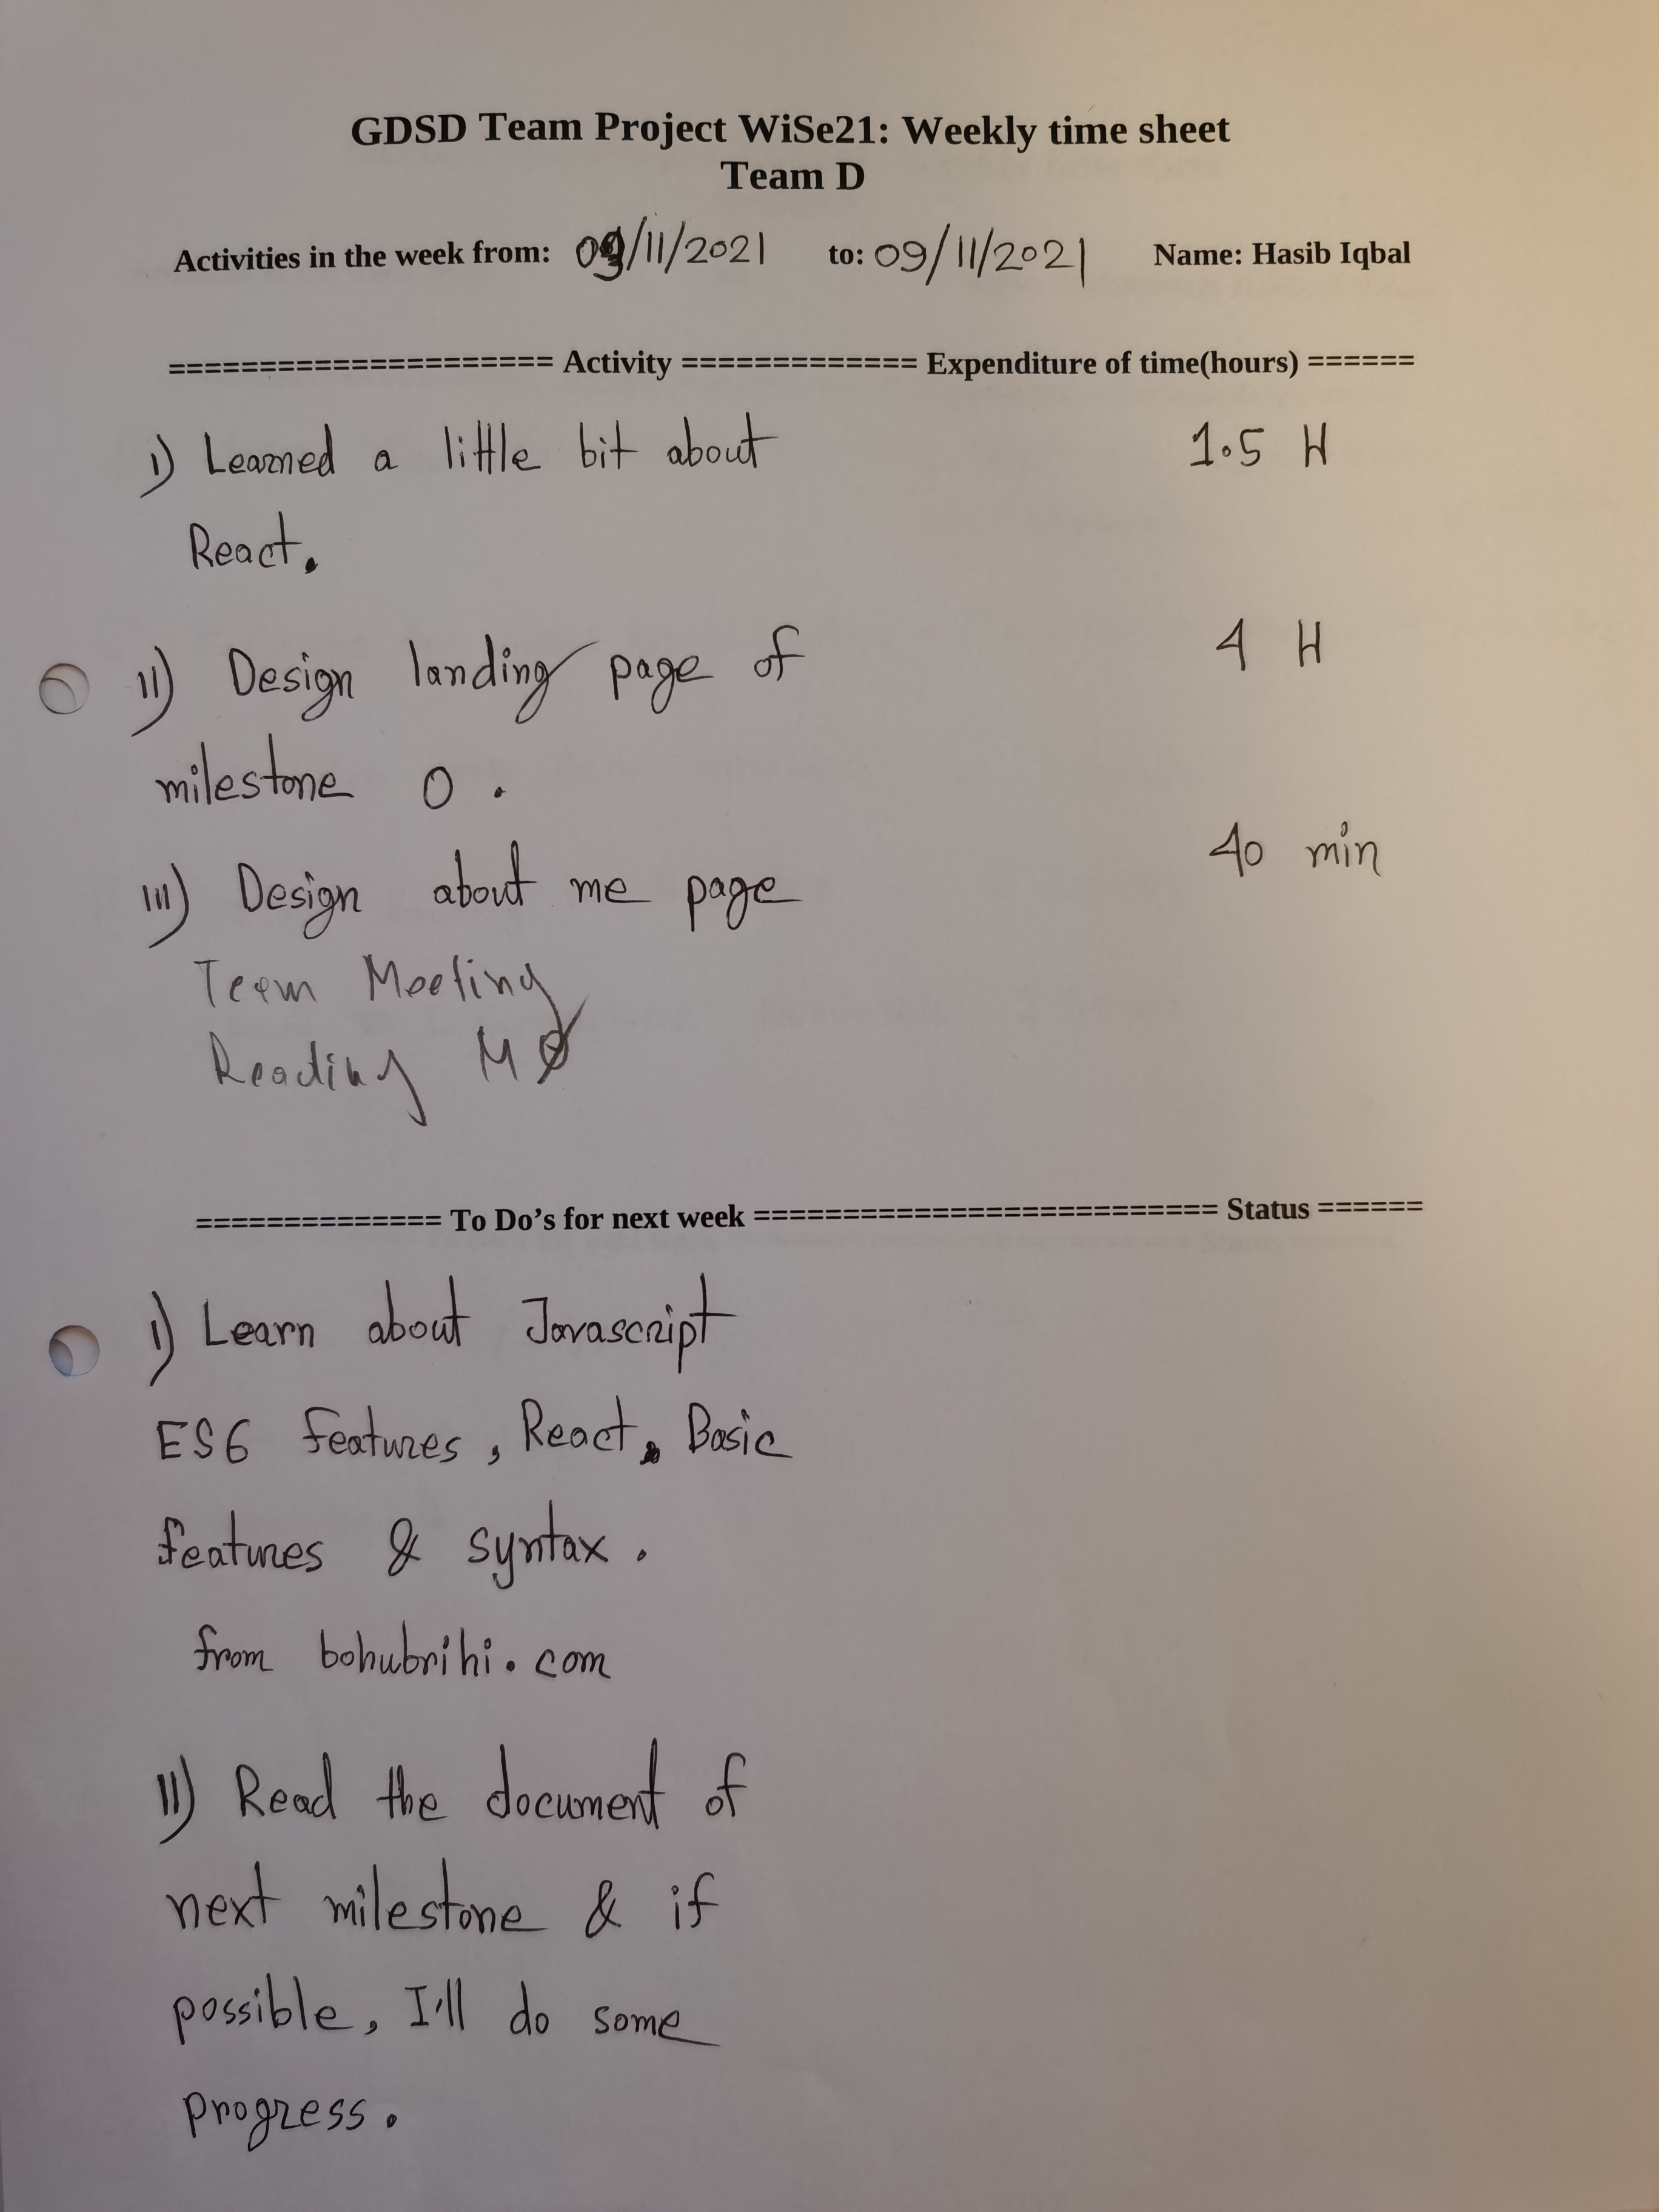 GDSD Team Project WiSe21: Weekly time sheet
Team D
Activities in the week from: 09/11/2021 to: 09/11/2021 Name: Hasib Iqbal
===================== Activity ============= Expenditure of time(hours) ======
i) Learned a little bit about 1.5 H
React.
ii) Design landing page of 4 H
milestone 0.
iii) Design about me page 40 min
Team Meeting
Reading M0
============== To Do's for next week ========================== Status ======
i) Learn about Javascript
ES6 features, React, Basic
features & syntax.
from bohubrihi.com
II) Read the document of
next milestone & if
possible, I'll do some
progress.